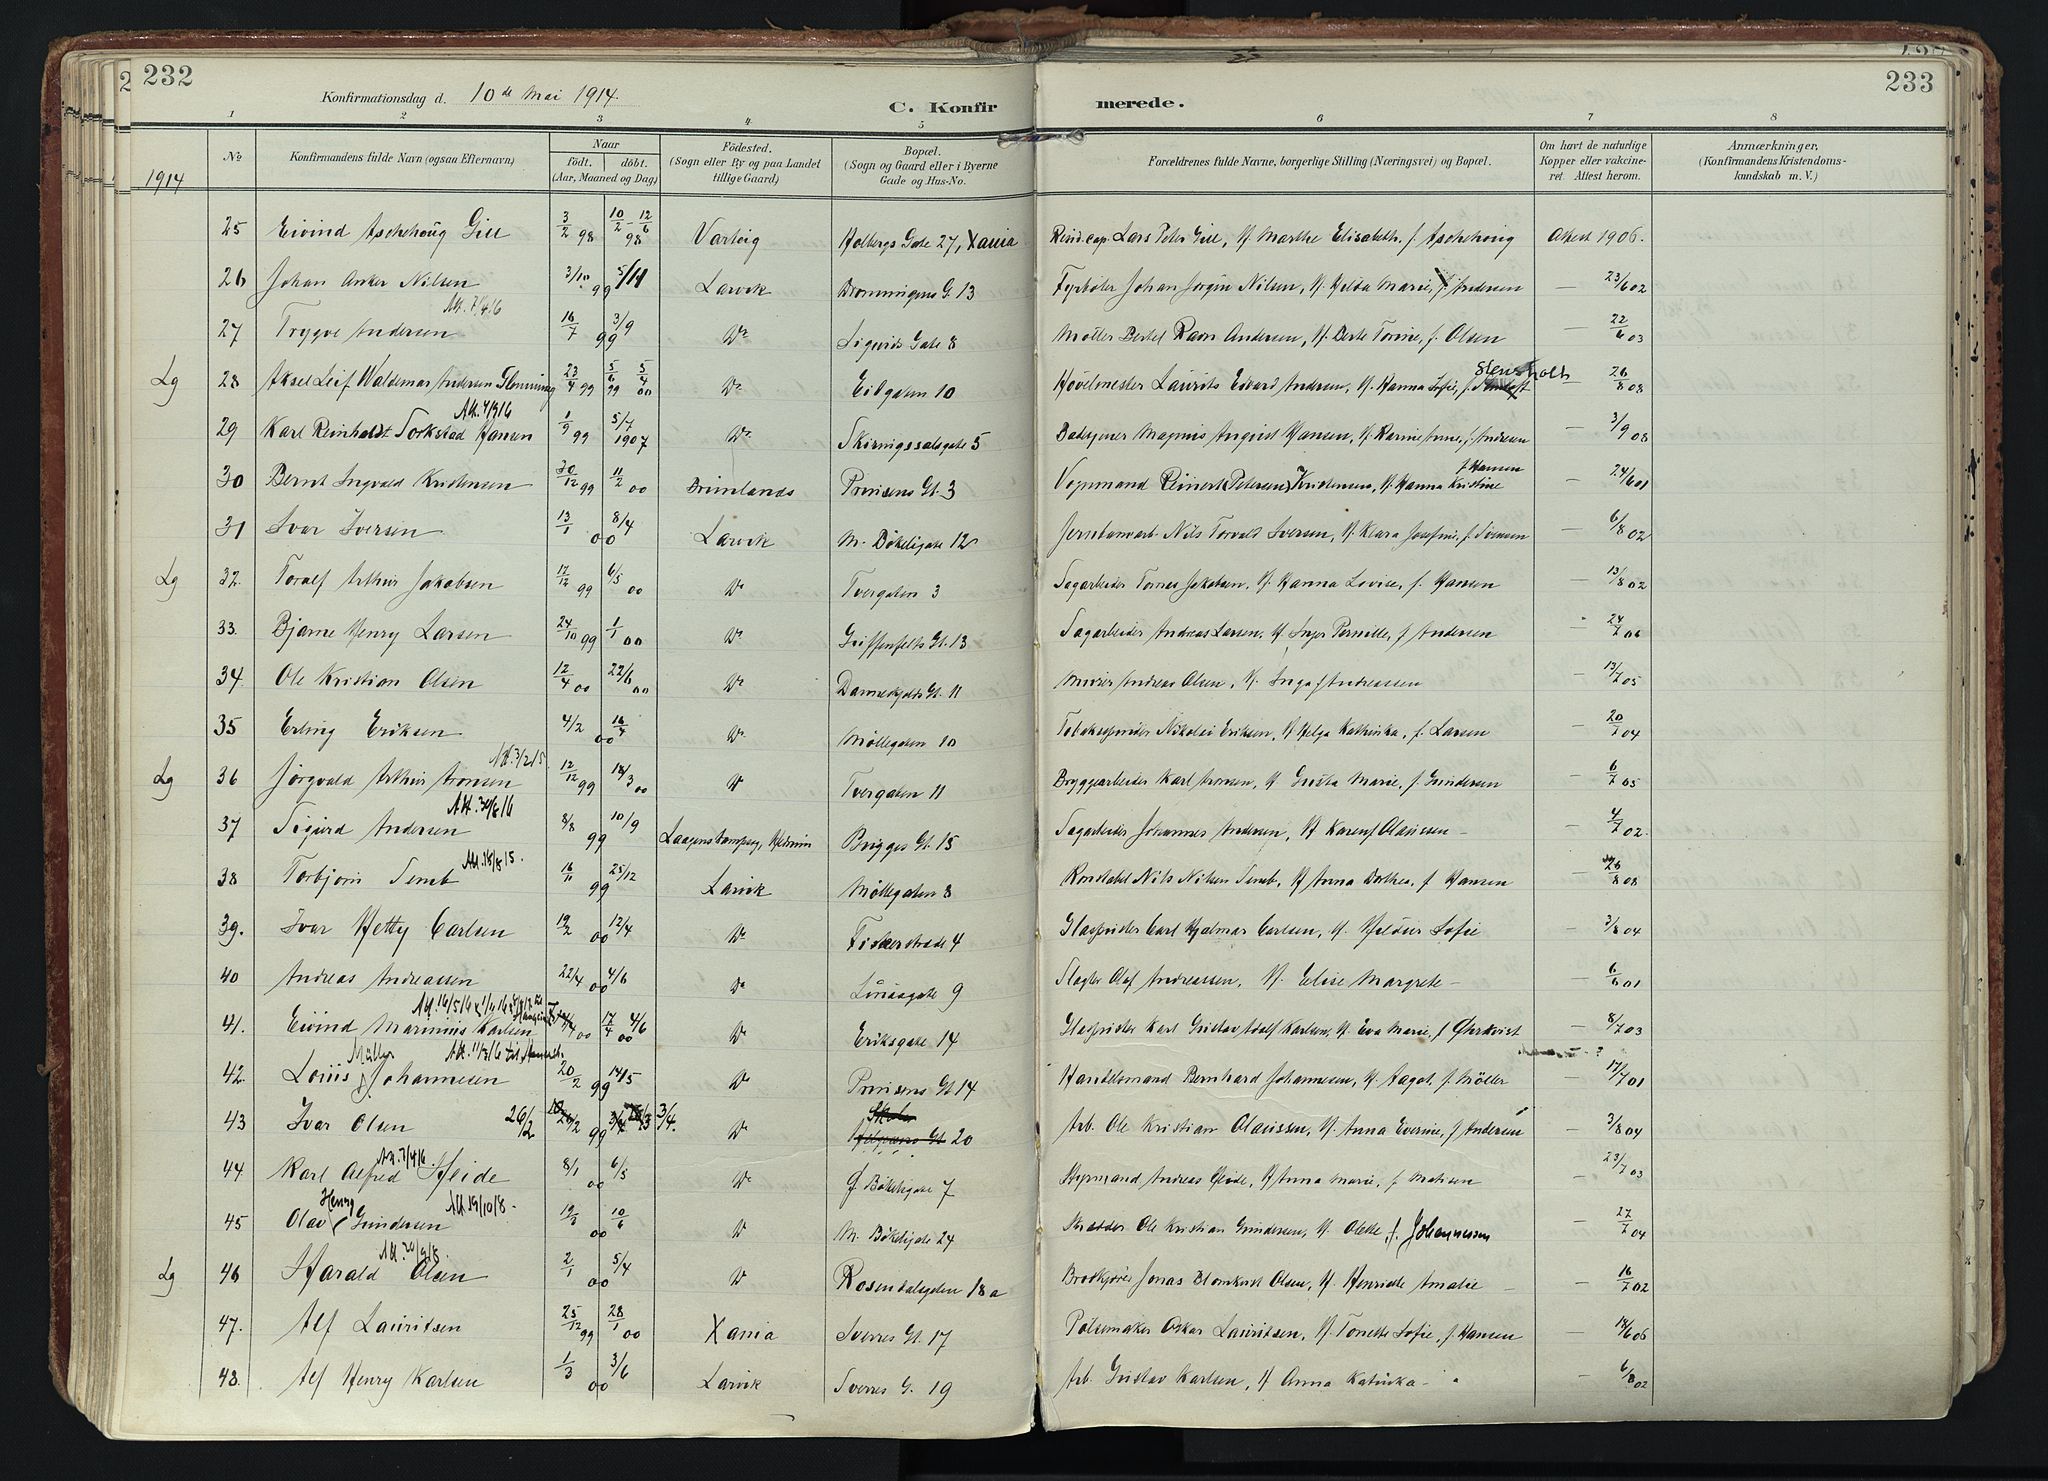 232
Konfirmationsdag d. 10de Mai 1914.
C. Konfirmerede.
233
1 2 3 4 5 6 7 8
No
Konfirmandens fulde Navn (ogsaa Efternavn)
Naar
født. døbt.
(Aar, Maaned og Dag)
Fødested.
(Sogn eller By og paa Landet tillige Gaard)
Bopæl.
(Sogn og Gaard eller i Byerne Gade og Hus-No.
Forældrenes fulde Navne, borgerlige Stilling (Næringsvei) og Bopæl.
Om havt de naturlige Kopper eller vakcineret. Attest herom.
Anmærkninger,
(Konfirmandens Kristendomskundskab m. V.)
1914
25 Eivind Aschehoug Gill 3/2 98 10/2 - 12/6 98 Holbergs Gate 27, Xania Lars Peter Gill, H. Marthe Elisabeth, f. Aschehoug Attest 1906.
26 Johan Anker Nilsen 3/10 99 5/11 Larvik Dronningens G. 13 Fyrbøter Johan Jørgen Nilsen, H. Hilda Marie, f. Andersen — 23/6 02
Att. 7/4 16
27 Trygve Andersen 16/7 99 3/9 Do Sigurds Gate 8 Møller Bertel Ravn Andersen, H. Berte Torine, f. Olsen — 22/6 03
Lg 28 Aksel Leif Waldemar Andersen Flemming 23/4 99 5/6 99 5/4 00 Do Eilgaten 10 Høvelmester Laurits Edvard Andersen, H. Hanna Sofie, f. Stensholt — 26/8 08
29 Karl Reinholdt Torkstad Hansen 1/9 99 5/7 1907 Do Skiringssalsgate 5 Magnus Anqvist Hansen, H. Karine Anne, f. Andresen — 3/9 08
30 Bernt Ingvald Kristensen 30/12 99 11/2 00 Brunlanes Prinsens Gt. 3 Vognmand Reinert (Petersen) Kristensen, H. Hanna Kristine f. Hansen — 24/6 01
31 Ivar Iversen 13/1 00 8/4 Larvik M. Bøkeligate 12 Jernbanearb. Nils Torvald Iversen, H. Klara Josefine, f. Sørensen — 6/8 02
Lg 32. Toralf Arthur Jakobsen 17/12 99 6/5 00 Do Tvergaten 3 Sagarbeider Tomas Jakobsen, H. Hanna Lovise, f. Hansen — 13/8 02
33. Bjarne Henry Larsen 24/10 99 1/1 00 Do Griffenfelts Gt. 13 Sagarbeider Andreas Larsen, H. Inger Pernille, f. Andersen — 24/7 06
34. Ole Kristian Olsen 12/4 00 22/6 00 Do Danneskjolds Gt. 11 Murer Andreas Olsen, H. Inga f. Andreassen — 13/7 05
35 Erling Eriksen 4/2 00 16/4 Do Møllegaten 10 Tobaksspinder Nikolai Eriksen, H. Helga Kathinka, f. Larsen — 20/7 04
Att. 3/2 15.
Lg 36 Jørgvald Arthur Aronsen 12/12 99 18/3 00 Do Tvergaten 11 Bryggearbeider Karl Aronsen, H. Gusta Marie, f. Gundersen — 6/7 05
Att. 30/6 16
37 Sigurd Andersen 8/8 99 10/9 Hedrum Brigges Gt. 15 Sagarbeider Johannes Andersen, H. Karen f. Olaussen — 4/7 02.
Att. 18/8 15.
38 Torbjørn Semb 16/11 99 25/12 Larvik Møllegaten 8 Konstabel Nils Nilsen Semb, H. Anna Dorthea, f. Hansen — 26/8 08
39. Ivar Hetty Carlsen 19/2 00 12/4 Do Fiskerstrade 4 Glaspuster Carl Hjalmar Carlsen, H. Hildur Sofie — 3/8 04
40 Andreas Andreassen 22/4 00 4/6 Do Linaagate 9 Slagter Olaf Andreassen, H. Elise Margrete — 6/6 01
41. Eivind Marinius Karlsen 00 17/4 00 4/6 Do Eriksgate 14 Glaspuster Karl Gustav Adolf Karlsen, H. Eva Marie, f. Øhrkvist — 8/7 03
Att. 11/3 16
42. Louis Müller Johannesen 20/2 99 14/5 Do Prinsens Gt 14 Handelsmand Bernhard Johannesen, H. Aagot, f. Møller — 17/7 01
43 Ivar Olsen 26/2 26/2 99 3/4. Do 20 Arb. Ole Kristian Olaussen, H. Anna Everine, f. Andersen — 3/8 04
Att. 7/4 16.
44 Karl Alfred Heide 8/1 00 6/5 Do Ø. Bøkeligate 7 Styrmand Andreas Heide, H. Anna Marie, f. Madsen — 23/7 03
Att 19/10 18.
45 Olav Henry Gundersen 19/3 00 10/6 Do M. Bøkeligate 24 Skrædder Ole Kristian Gundersen, H. Olette, f. Johannessen — 27/7 04
Lg 46 Harald Olsen 2/1 00 5/4 Do Rosendalsgaten 18a Brødkjører Jonas Blomkvist Olsen, H. Henriette Amalie — 16/7 02
47. Alf Lauritsen 25/12 99 28/1 00 Xania Sverres Gt. 17 Pølsemaker Oskar Lauritsen, H. Tonette Sofie, f. Hansen — 18/6 06
48. Alf Henry Karlsen 1/3 00 3/6 Larvik Sverres G. 19 Arb. Gustav Karlsen, H. Anna Katinka — 6/8 02